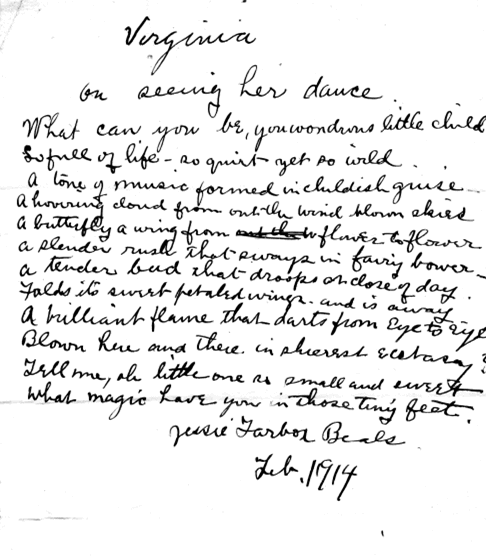 Virginia
on seeing her dance.
What can you be, you wondrous little child
So full of life - so quiet yet so wild.
A tone of music formed in childish guise -
A hovering cloud from out the wind blown skies
A butterfly a wing from flower to flower
a slender rush that sways in fairy bower -
a tender bud that droops at close of day.
Folds its sweet petaled wings. and is away
A brilliant flame that darts from Eye to Eye
Blown here and there in sheerest ecstasy?
Tell me, oh little one so small and sweet
What magic have you in those tiny feet.
Jessie Tarbox Beals
Feb. 1914